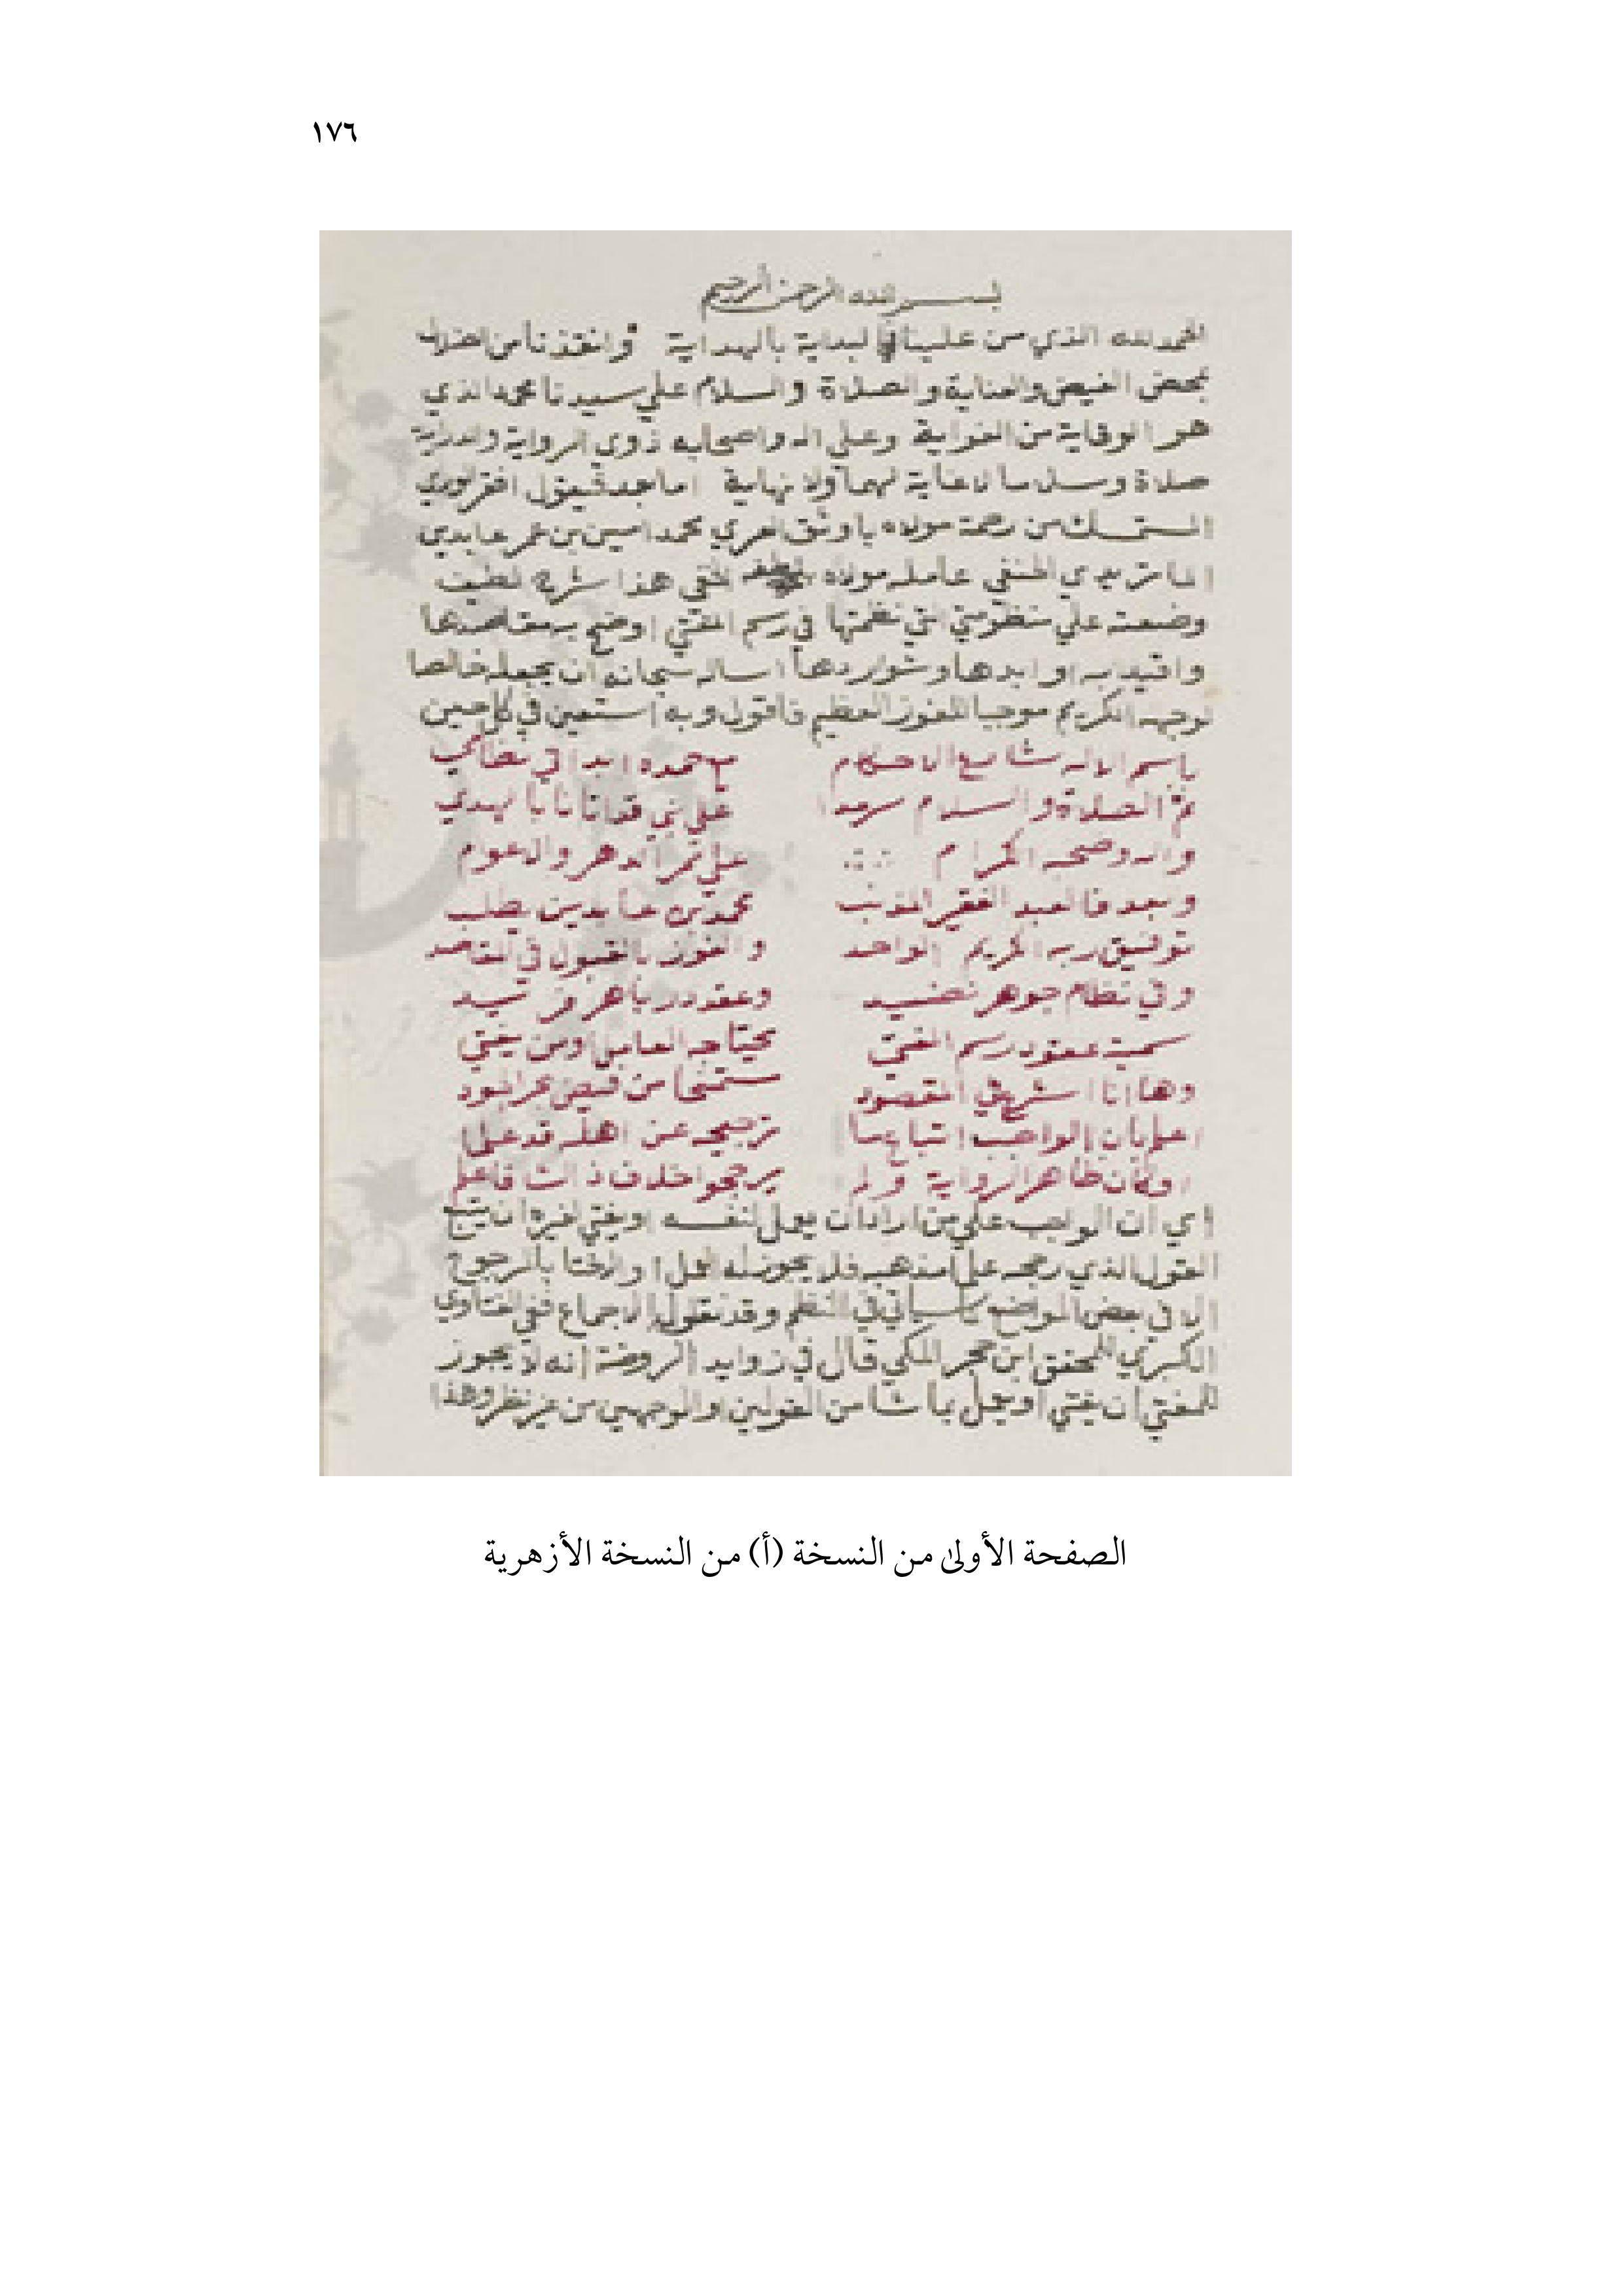 ١٧٦
بسم الله الرحمن الرحيم
الحمد لله الذي من علينا في البداية بالهداية وانقذنا من الضلالة
بمحض الفيض والعناية والصلاة والسلام علي سيدنا محمد الذي
هو الوقاية من الغواية وعلى اله واصحابه ذوى الرواية والدراية
صلاة وسلاما لا غاية لهما ولا نهاية اما بعد فيقول افقر الوري
المستمسك من رحمة مولاه باوثق العري محمد امين بن عمر عابدين
الماتريدي الحنفي عامله مولاه بلطفه الخفي هذا شرح لطيف
وضعته علي منظومتي التي نظمتها في رسم المفتي اوضح به مقاصدها
واقيد به اوابدها وشواردها اساله سبحانه ان يجعله خالصا
لوجهه الكريم موجبا للفوز العظيم فاقول وبه استعين في كل حين
باسم الاله شارع الاحكام مع حمده ابدا في نظامي
ثم الصلاة والسلام سرمدا علي نبي قد اتانا بالهدي
واله وصحبه الكرام علي ممر الدهر والاعوام
وبعد فالعبد الفقير المذنب محمد بن عابدين يطلب
توفيق ربه الكريم الواحد والفوز بالقبول في المقاصد
وفي نظام جوهر نضيد وعقد در باهر فريد
سميته عقود رسم المفتي يحتاجه العامل او من يفتي
وها انا اشرع في المقصود مستمنحا من فيض بحر الجود
اعلم بان الواجب اتباع ما ترجيحه عن اهله قد علما
او كان ظاهر الرواية ولم يرجحوا خلاف ذاك فاعلم
اي ان الواجب علي من اراد ان يعمل لنفسه او يفتي غيره ان يتبع
القول الذي رجحه علماء مذهبه فلا يجوز له العمل او الافتا بالمرجوح
الا في بعض المواضع كما سياتي في النظم وقد نقلوا الاجماع ففي الفتاوي
الكبري للمحقق ابن حجر المكي قال في زوايد الروضة انه لا يجوز
للمفتي ان يفتي او يعمل بما شا من القولين او الوجهين من غير نظر وهذا
الصفحة الأولىٰ من النسخة (أ) من النسخة الأزهرية